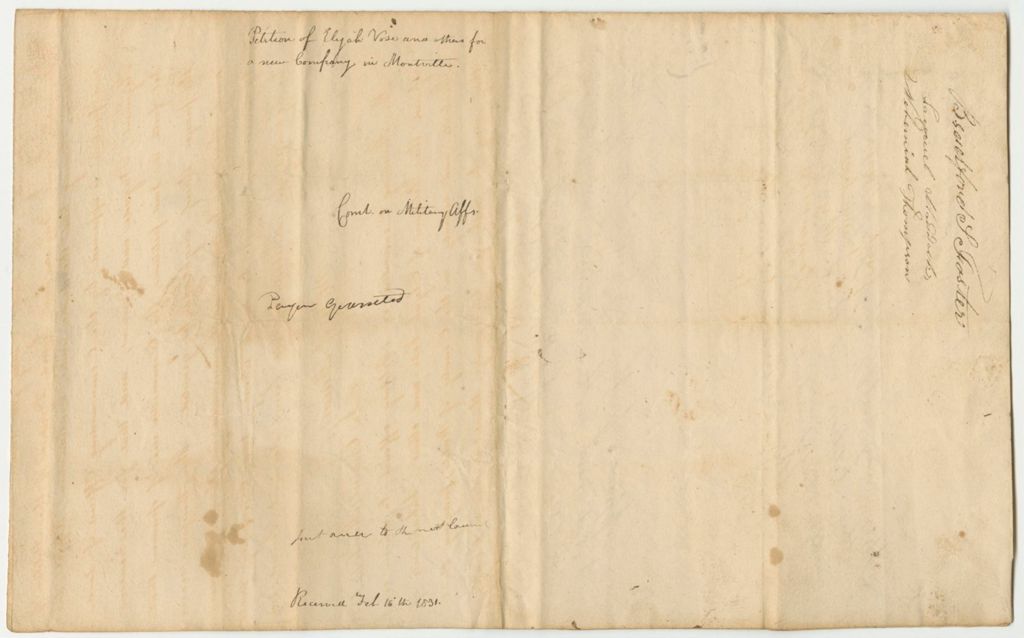 Petition of Elijah Vose and others for
a new Company in Montville.
Comt. on Military Affs.
Prayer Granted
put over to the next Council
Received Feb 16th 1831.
Bradford S Foster
Nehemiah Thompson